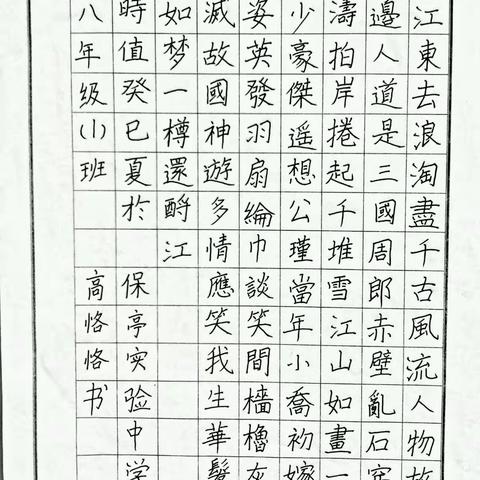 江東去浪淘盡千古風流人物故
邊人道是三國周郎赤壁亂石穿
濤拍岸捲起千堆雪江山如畫一
少豪傑遥想公瑾當年小喬初嫁
姿英發羽扇綸巾談笑間檣櫓灰
滅故國神遊多情應笑我生華髮
如梦一樽還酹江
時值癸巳夏於 保亭实验中学
八年级(1)班 高恪恪书